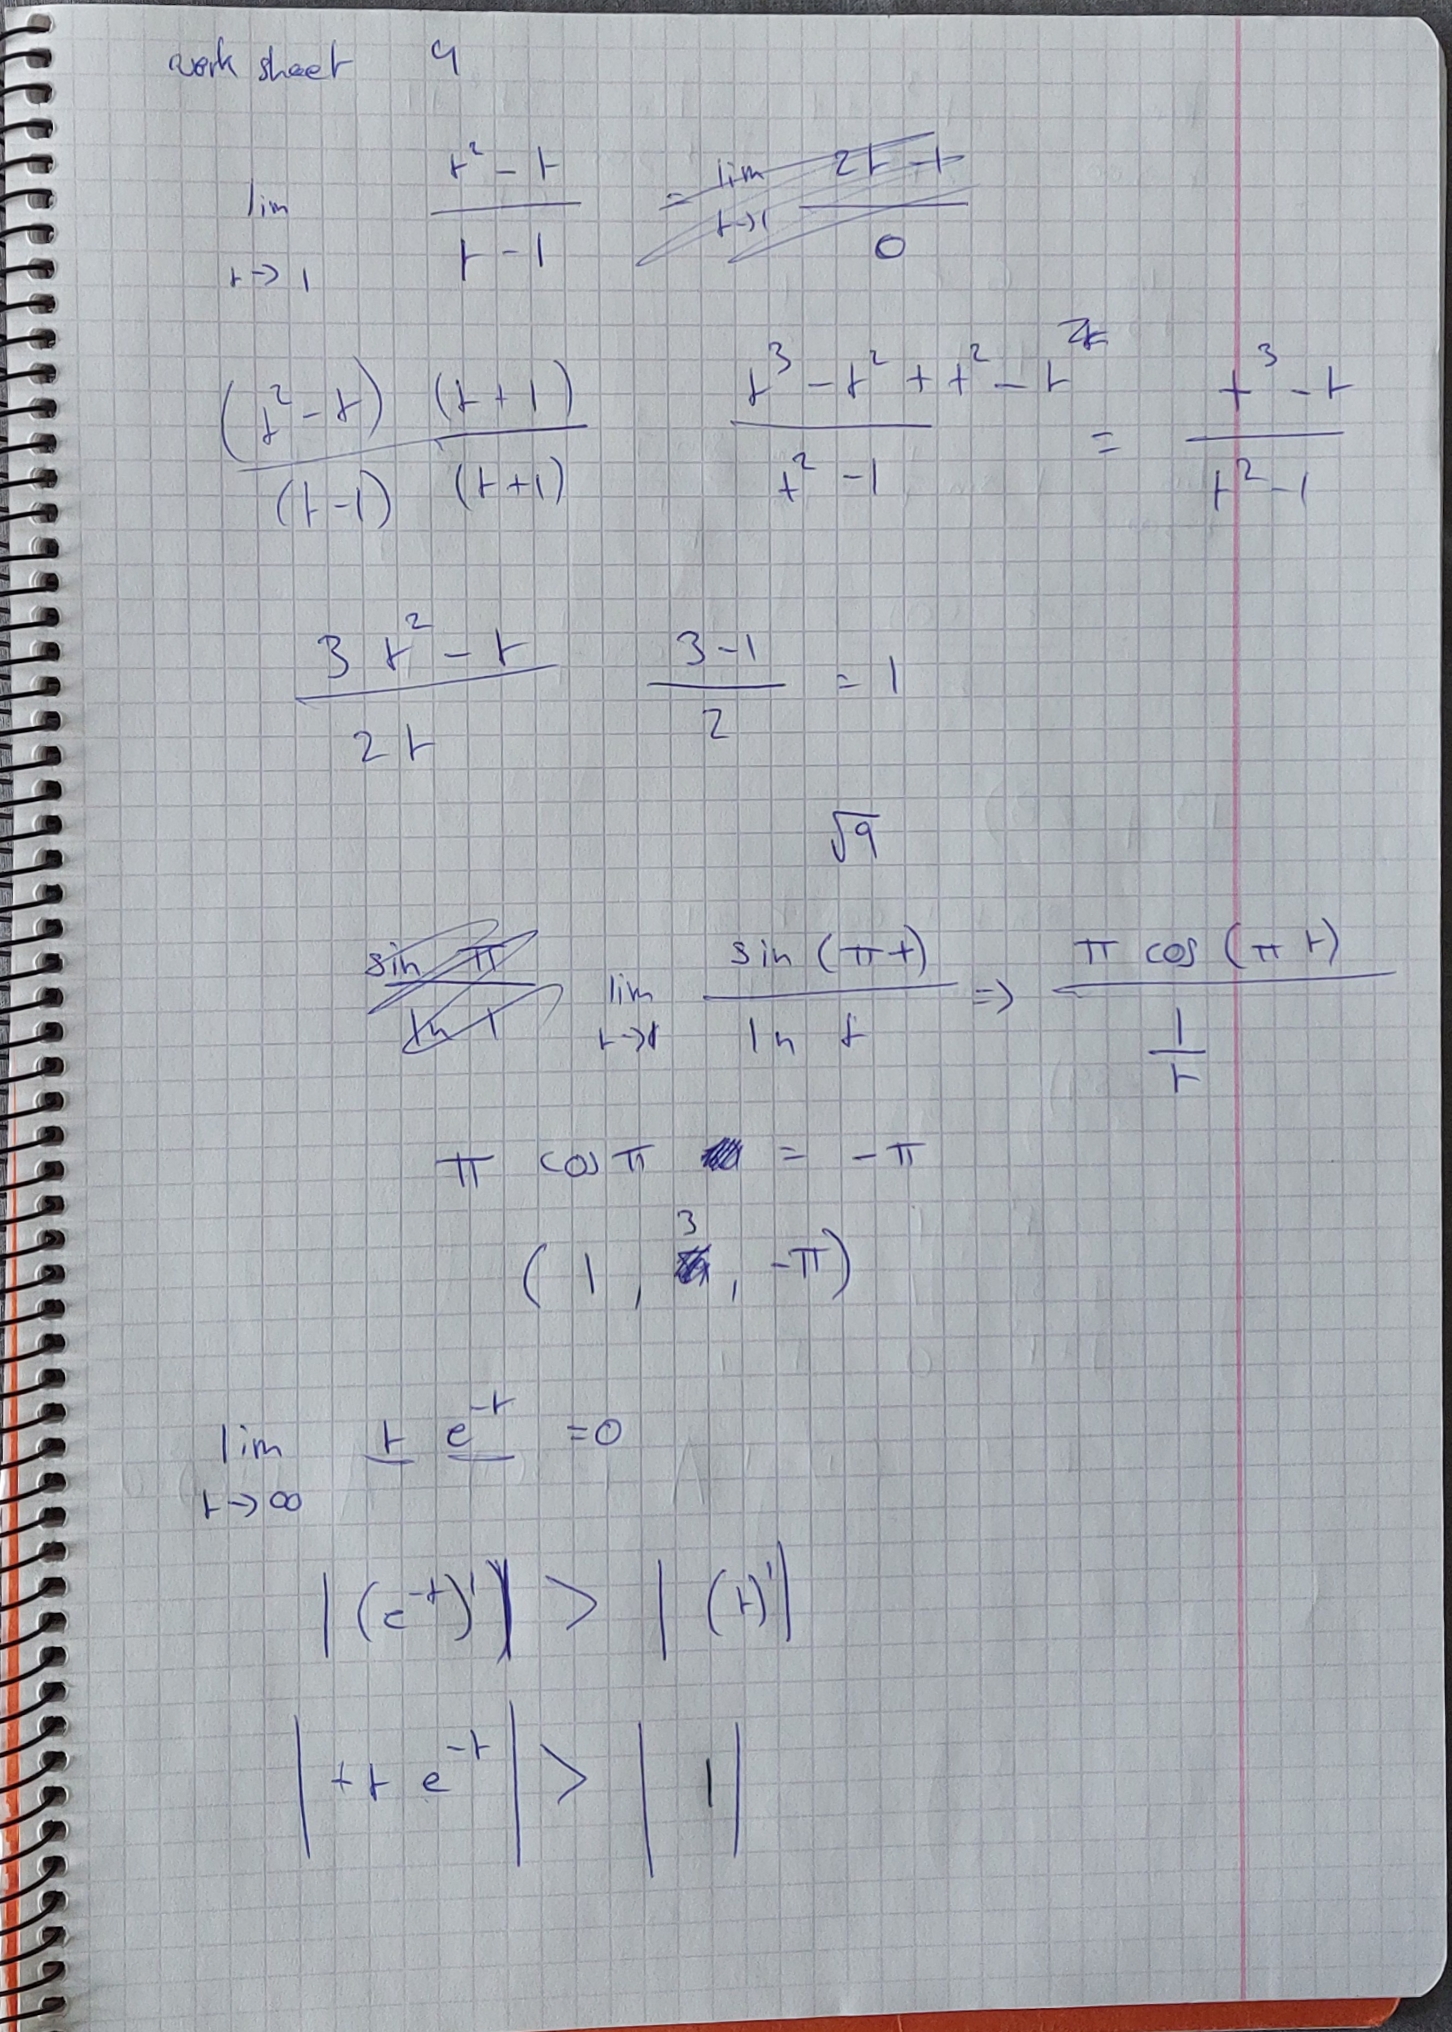 work sheet 4
lim t→1 (t² - t)/(t - 1) = lim t→1 (2t - t)/0
((t² - t)(t + 1))/((t-1)(t+1)) (t³ - t² + t² - t)/(t² - 1) = (t³ - t)/(t² - 1)
(3t² - t)/(2t) (3-1)/2 = 1
√9
sin π / ln 1 lim t→1 sin(πt)/ln t ⇒ π cos(πt)/(1/t)
π cos π = -π
(1, 3, -π)
lim t→∞ t e^-t = 0
|(e^-t)'| > |(t)'|
|+t e^-t| > |1|